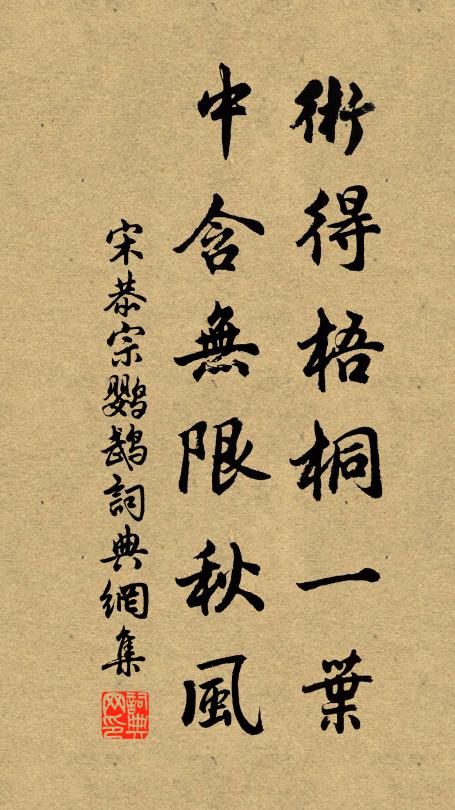 術得梧桐一葉
中含無限秋風
宋恭宗鸚鵡詞典網集
詞典
网印